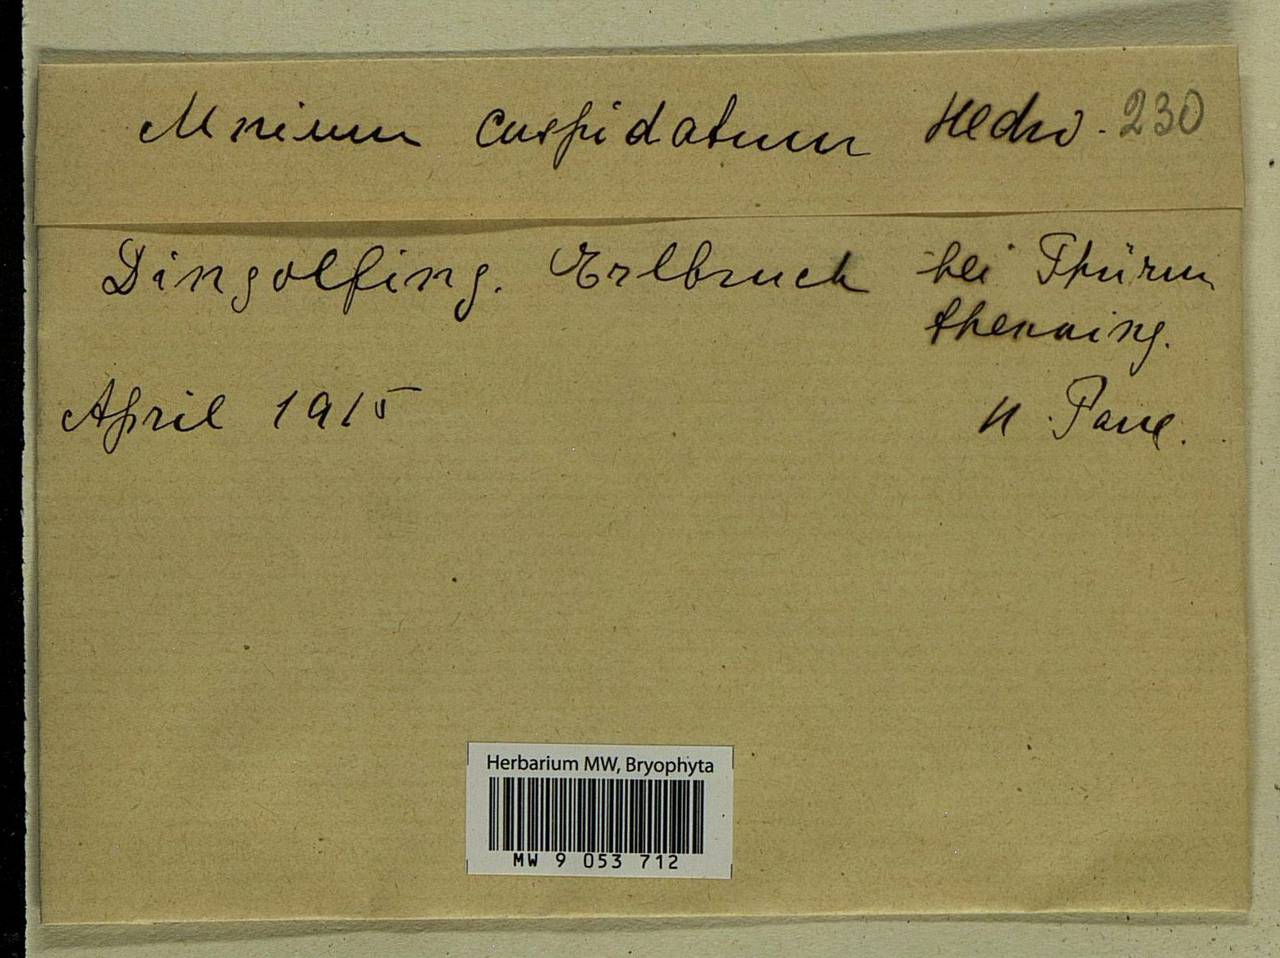 Mnium cuspidatum Hedw. 230
Dingolfing. Erlbruch bei Thürn
thenning.
April 1915
H. Paul.
Herbarium MW, Bryophyta
MW 9 053 712